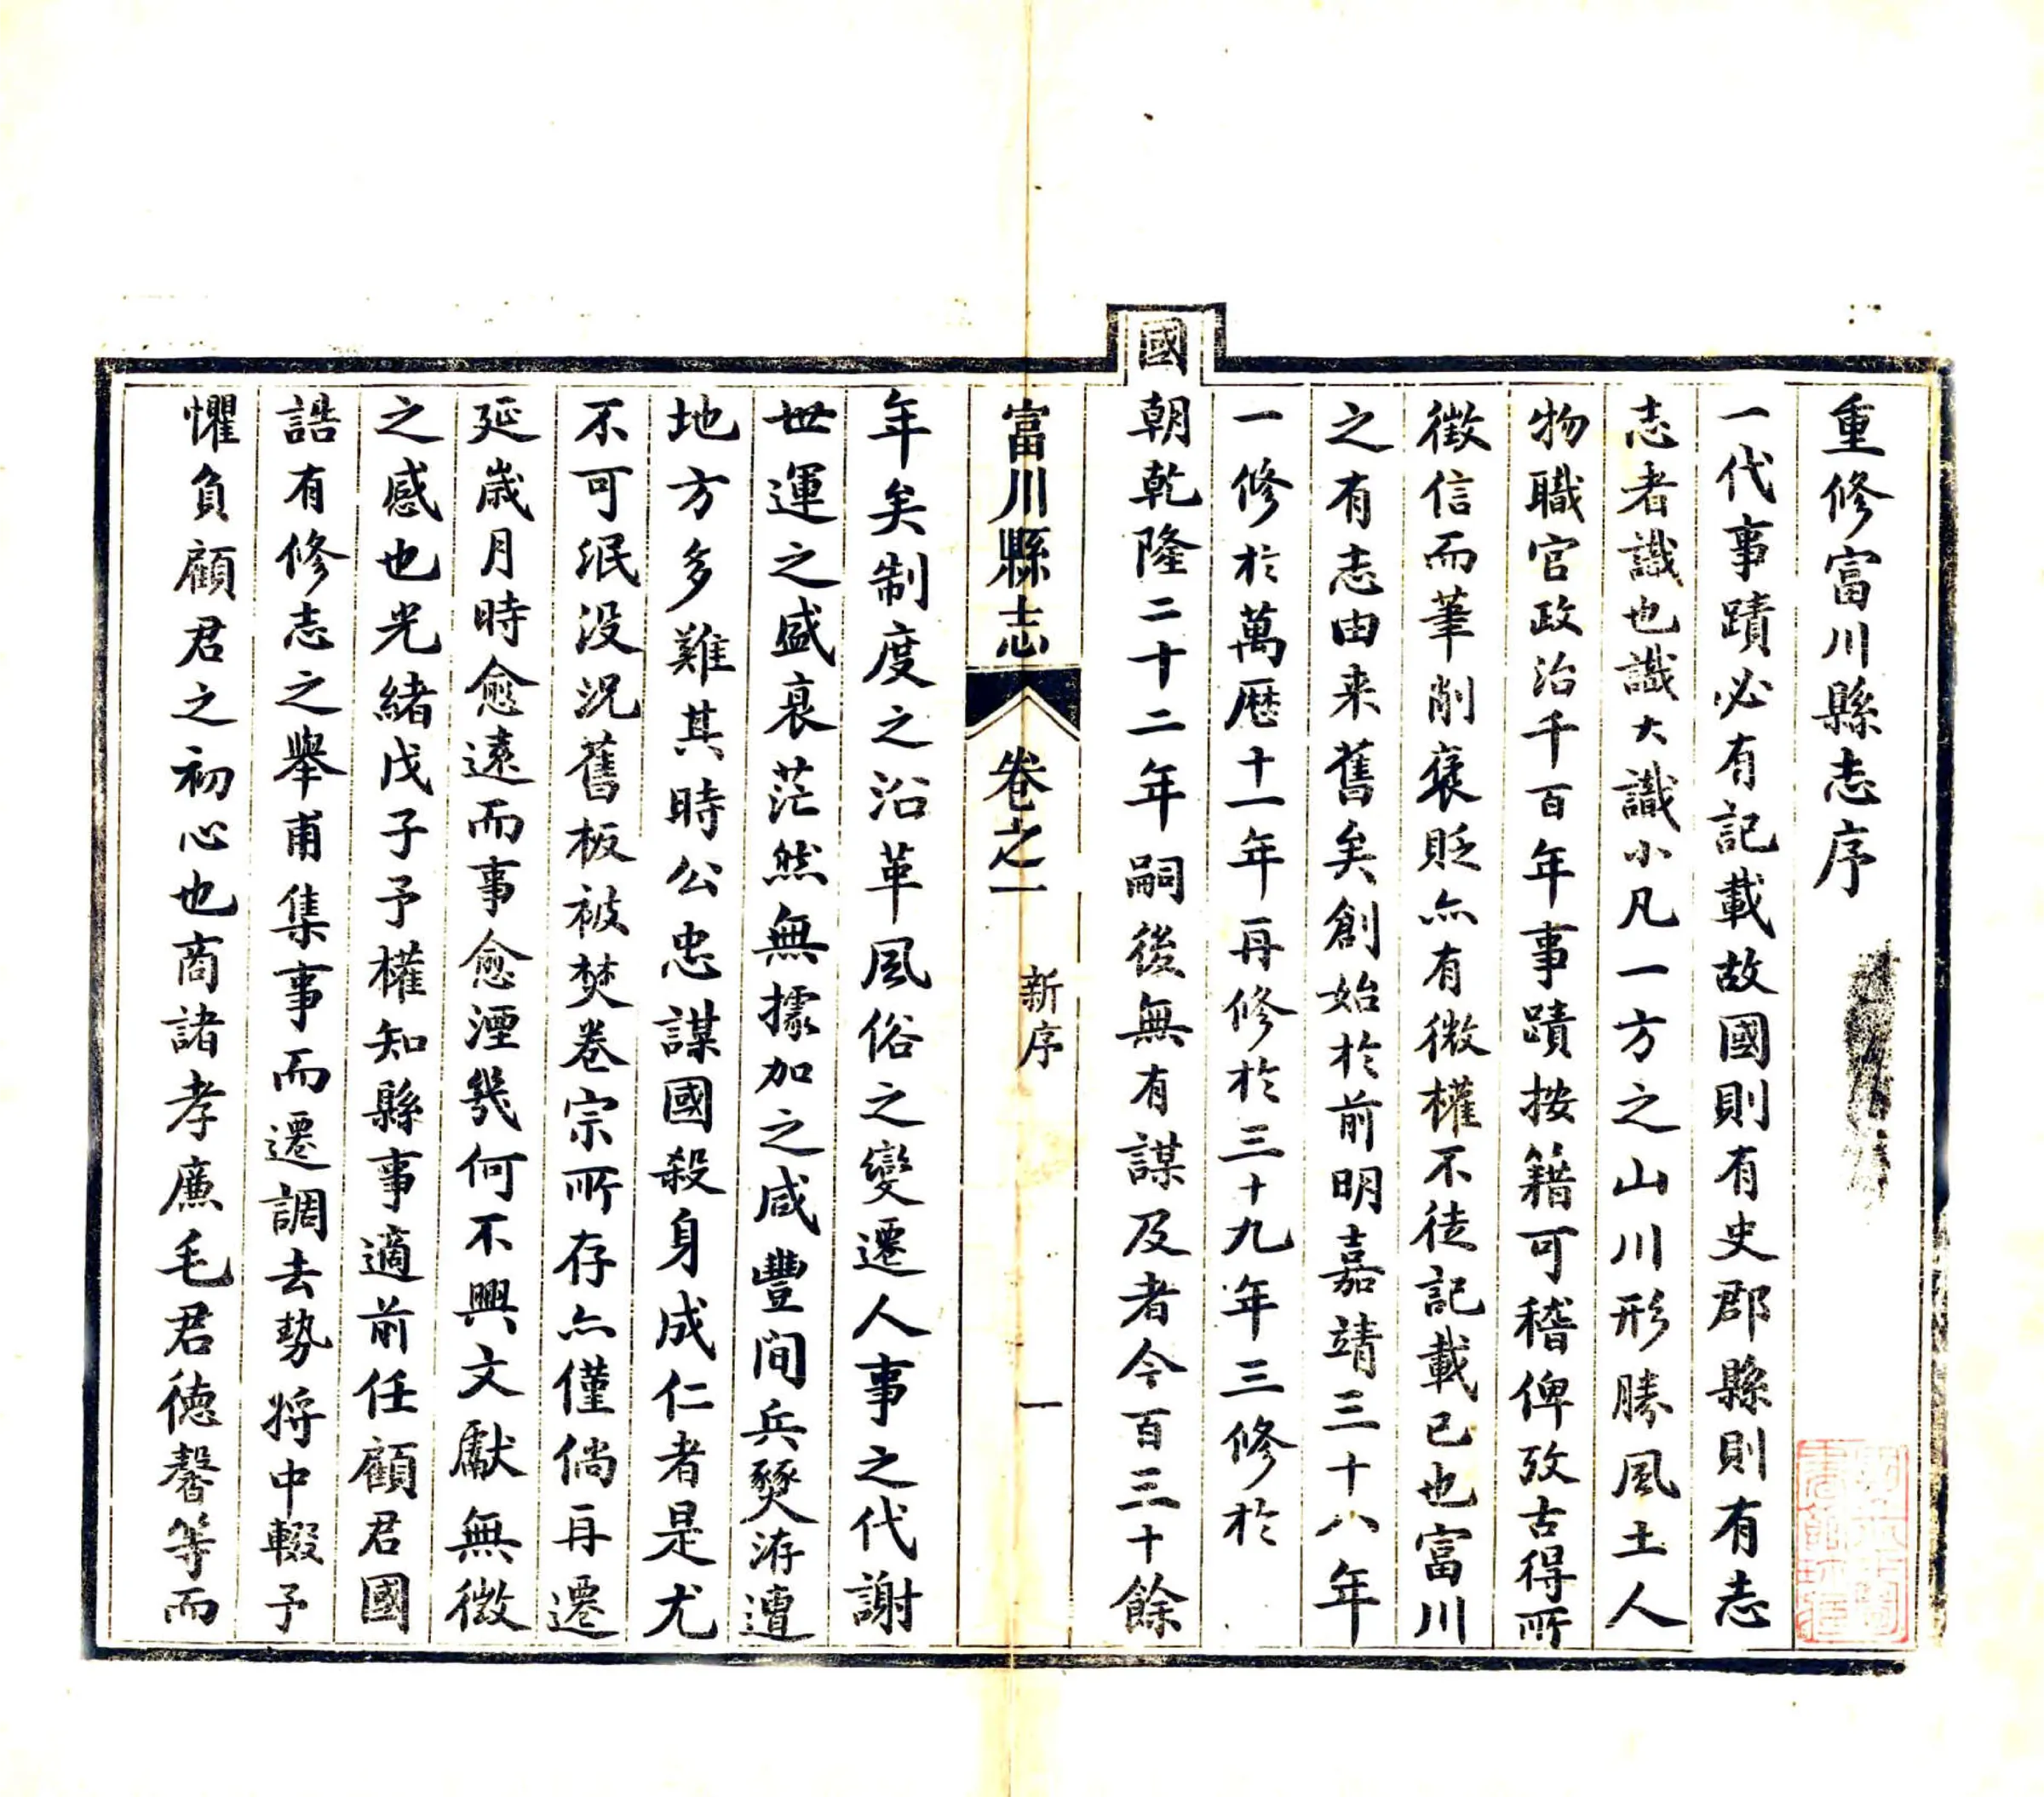 重修富川縣志序
一代事蹟必有記載故國則有史郡縣則有志
志者識也識大識小凡一方之山川形勝風土人
物職官政治千百年事蹟按籍可稽俾攷古得所
徵信而筆削褒貶亦有微權不徒記載已也富川
之有志由来舊矣創始於前明嘉靖三十八年
一修於萬厯十一年再修於三十九年三修於
國朝乾隆二十二年嗣後無有謀及者今百三十餘
富川縣志 卷之一 新序 一
年矣制度之沿革風俗之變遷人事之代謝
世運之盛衰茫然無據加之咸豐间兵燹洊遭
地方多難其時公忠謀國殺身成仁者是尤
不可泯没況舊板被焚卷宗所存亦僅倘再遷
延歲月時愈遠而事愈湮幾何不興文獻無徵
之感也光緒戊子予權知縣事適前任顧君國
誥有修志之舉甫集事而遷調去勢將中輟予
懼負顧君之初心也商諸孝廉毛君德馨等而